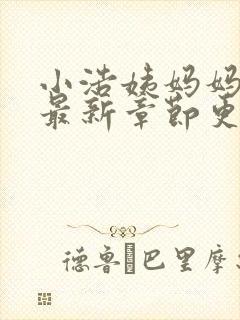 小浩姨妈妈
最新章节更
德鲁·巴里摩